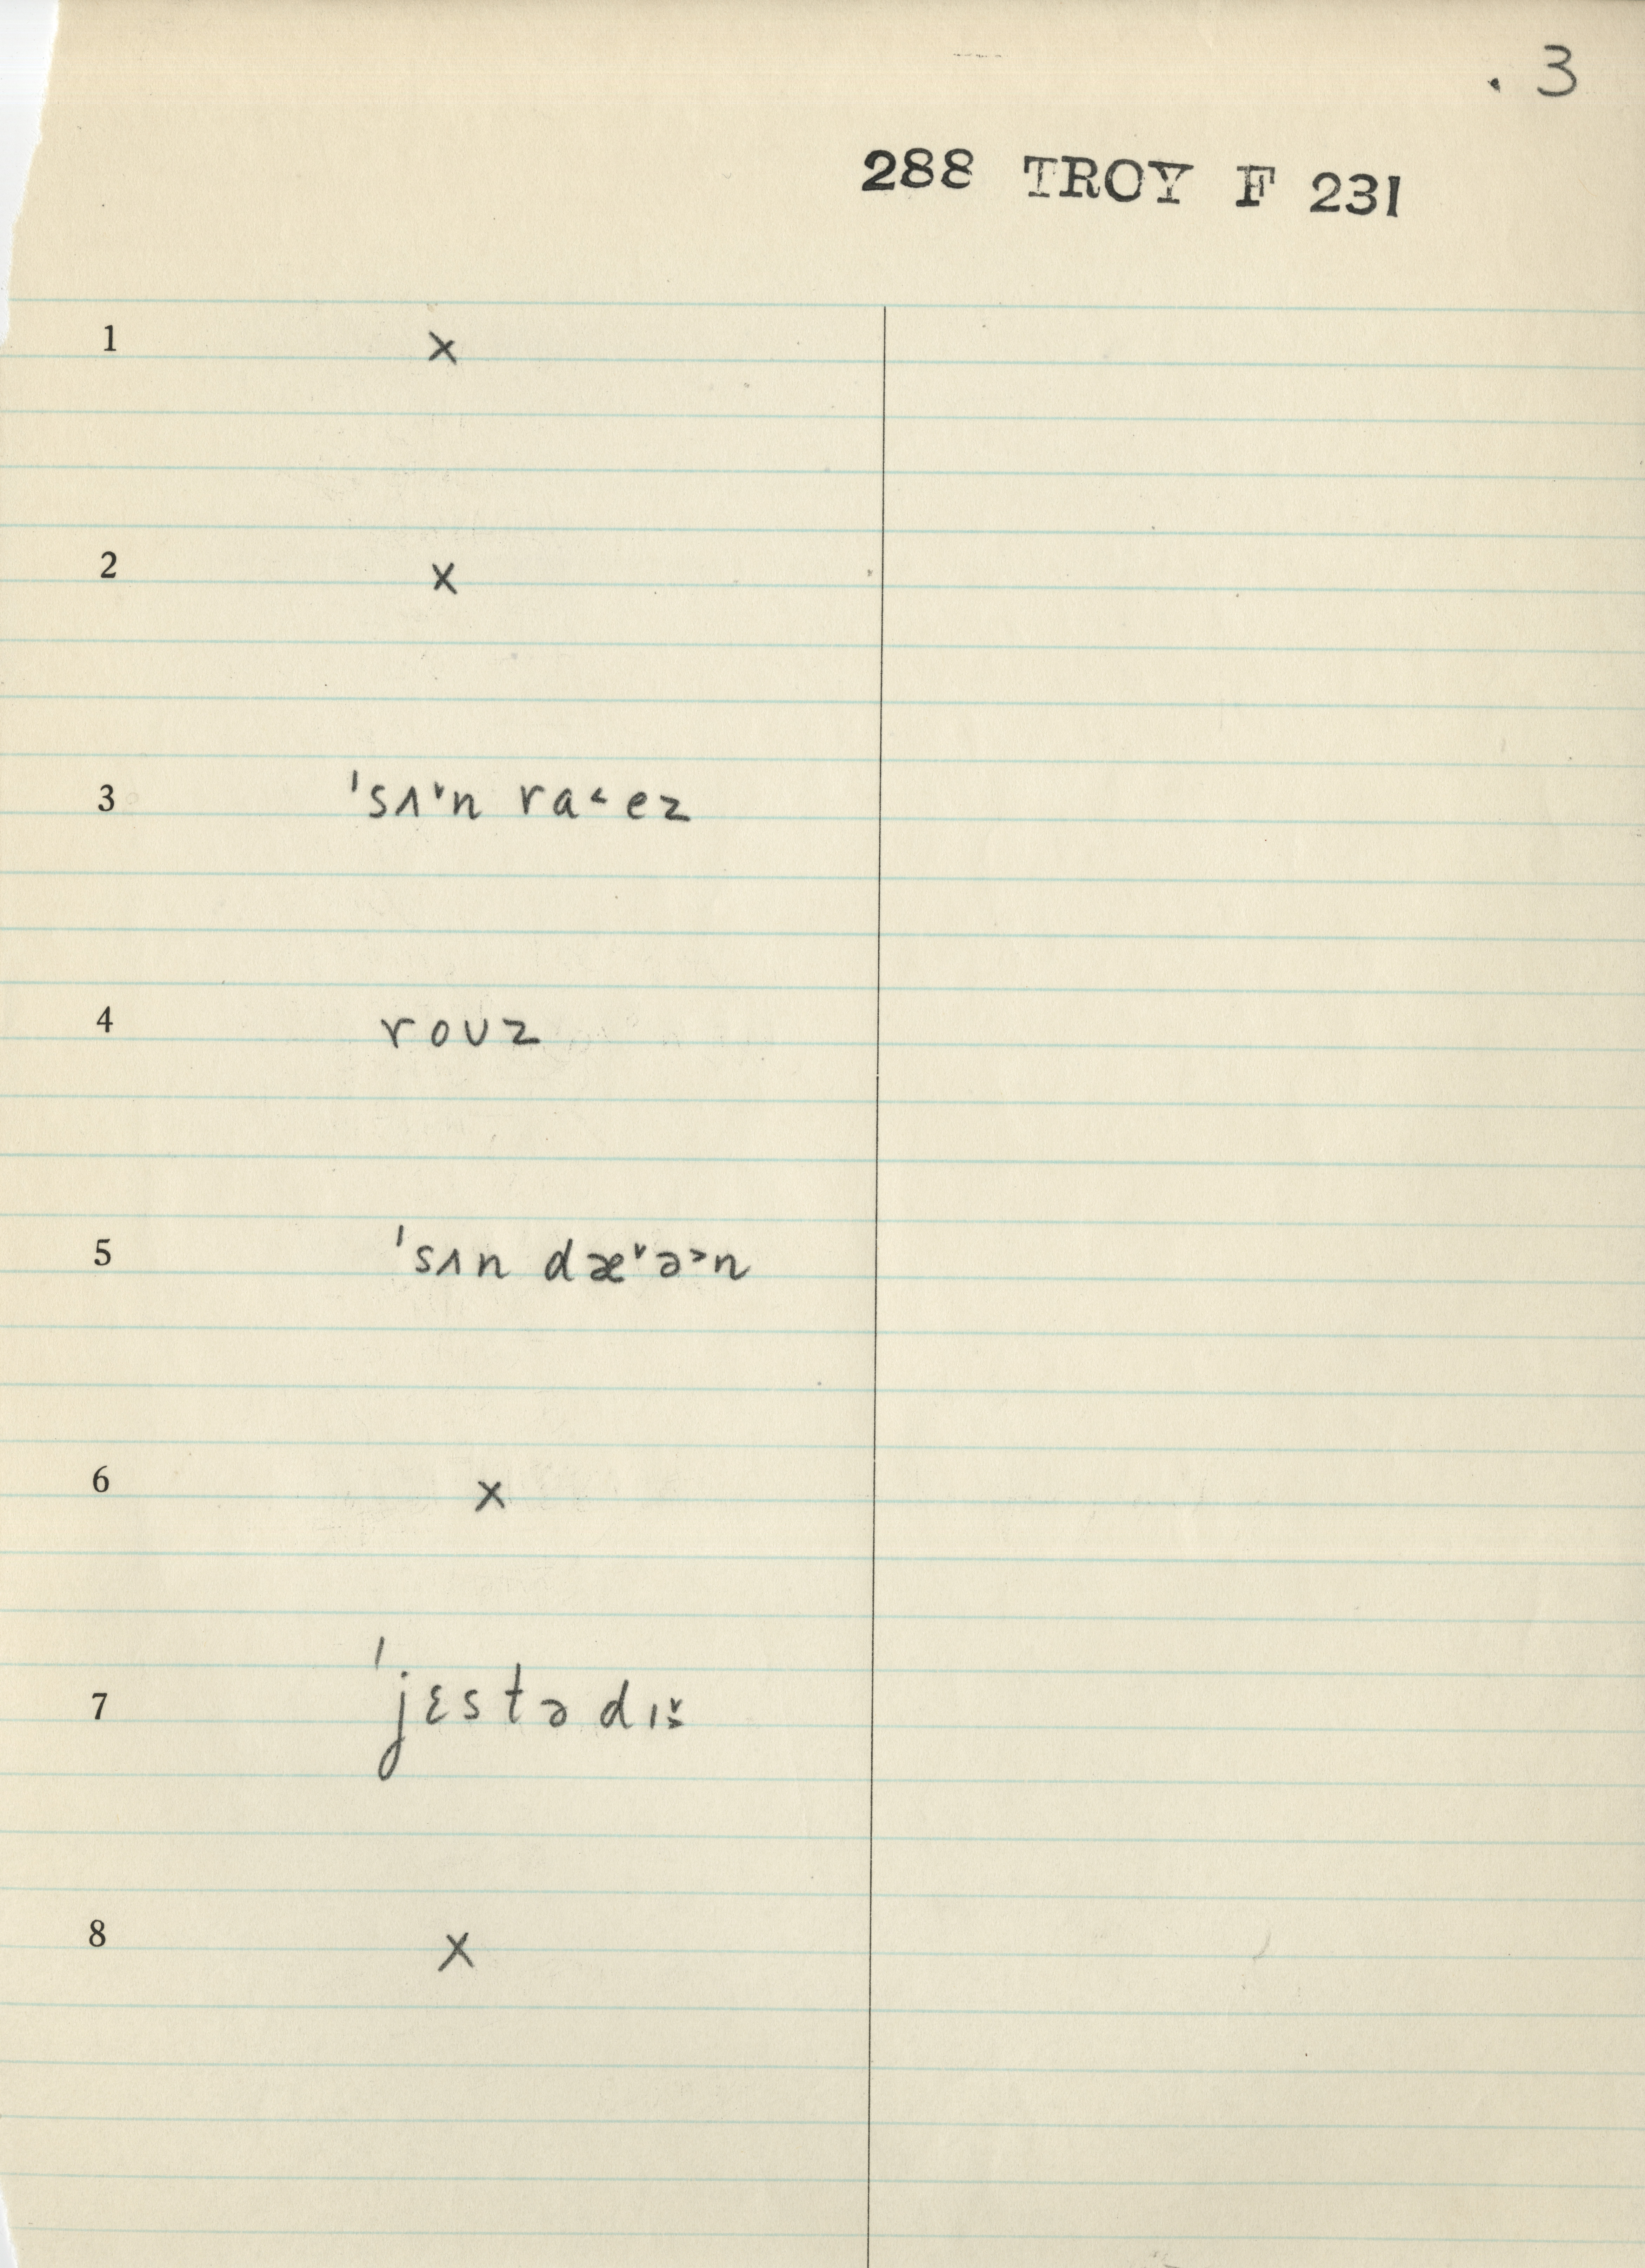 . 3
288 TROY F 231
1 x
2 x
3 ˈsʌ˅n ra˂ez
4 roʊz
5 ˈsʌn dæ˅ə˃n
6 x
7 ˈjɛstədɪ̌s
8 x